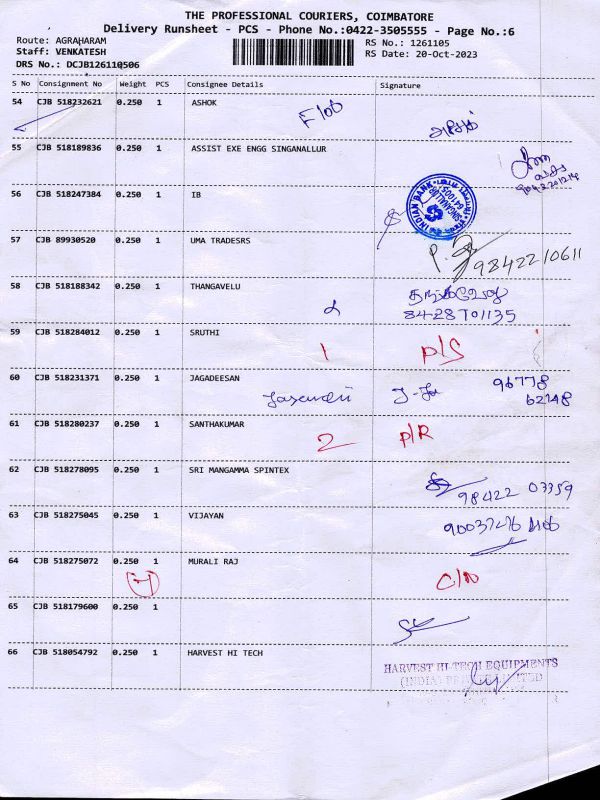 THE PROFESSIONAL COURIERS, COIMBATORE
Delivery Runsheet - PCS - Phone No.:0422-3505555 - Page No.:6
Route: AGRAHARAM
Staff: VENKATESH
DRS No.: DCJB126110506
RS No.: 1261105
RS Date: 20-Oct-2023
S No Consignment No Weight PCS Consignee Details Signature
54 CJB 518232621 0.250 1 ASHOK
55 CJB 518189836 0.250 1 ASSIST EXE ENGG SINGANALLUR
56 CJB 518247384 0.250 1 IB
INDIAN BANK
SINGANALLUR
641005
57 CJB 89930520 0.250 1 UMA TRADESRS
9842210611
58 CJB 518188342 0.250 1 THANGAVELU
தங்கவேலு
8428701135
59 CJB 518284012 0.250 1 SRUTHI
1 P/S
60 CJB 518231371 0.250 1 JAGADEESAN
96778
62148
61 CJB 518280237 0.250 1 SANTHAKUMAR
2 P/R
62 CJB 518278095 0.250 1 SRI MANGAMMA SPINTEX
98422 03359
63 CJB 518275045 0.250 1 VIJAYAN
64 CJB 518275072 0.250 1 MURALI RAJ
C/N
65 CJB 518179600 0.250 1
66 CJB 518054792 0.250 1 HARVEST HI TECH
HARVEST HI-TECH EQUIPMENTS
(INDIA) PRIVATE LIMITED